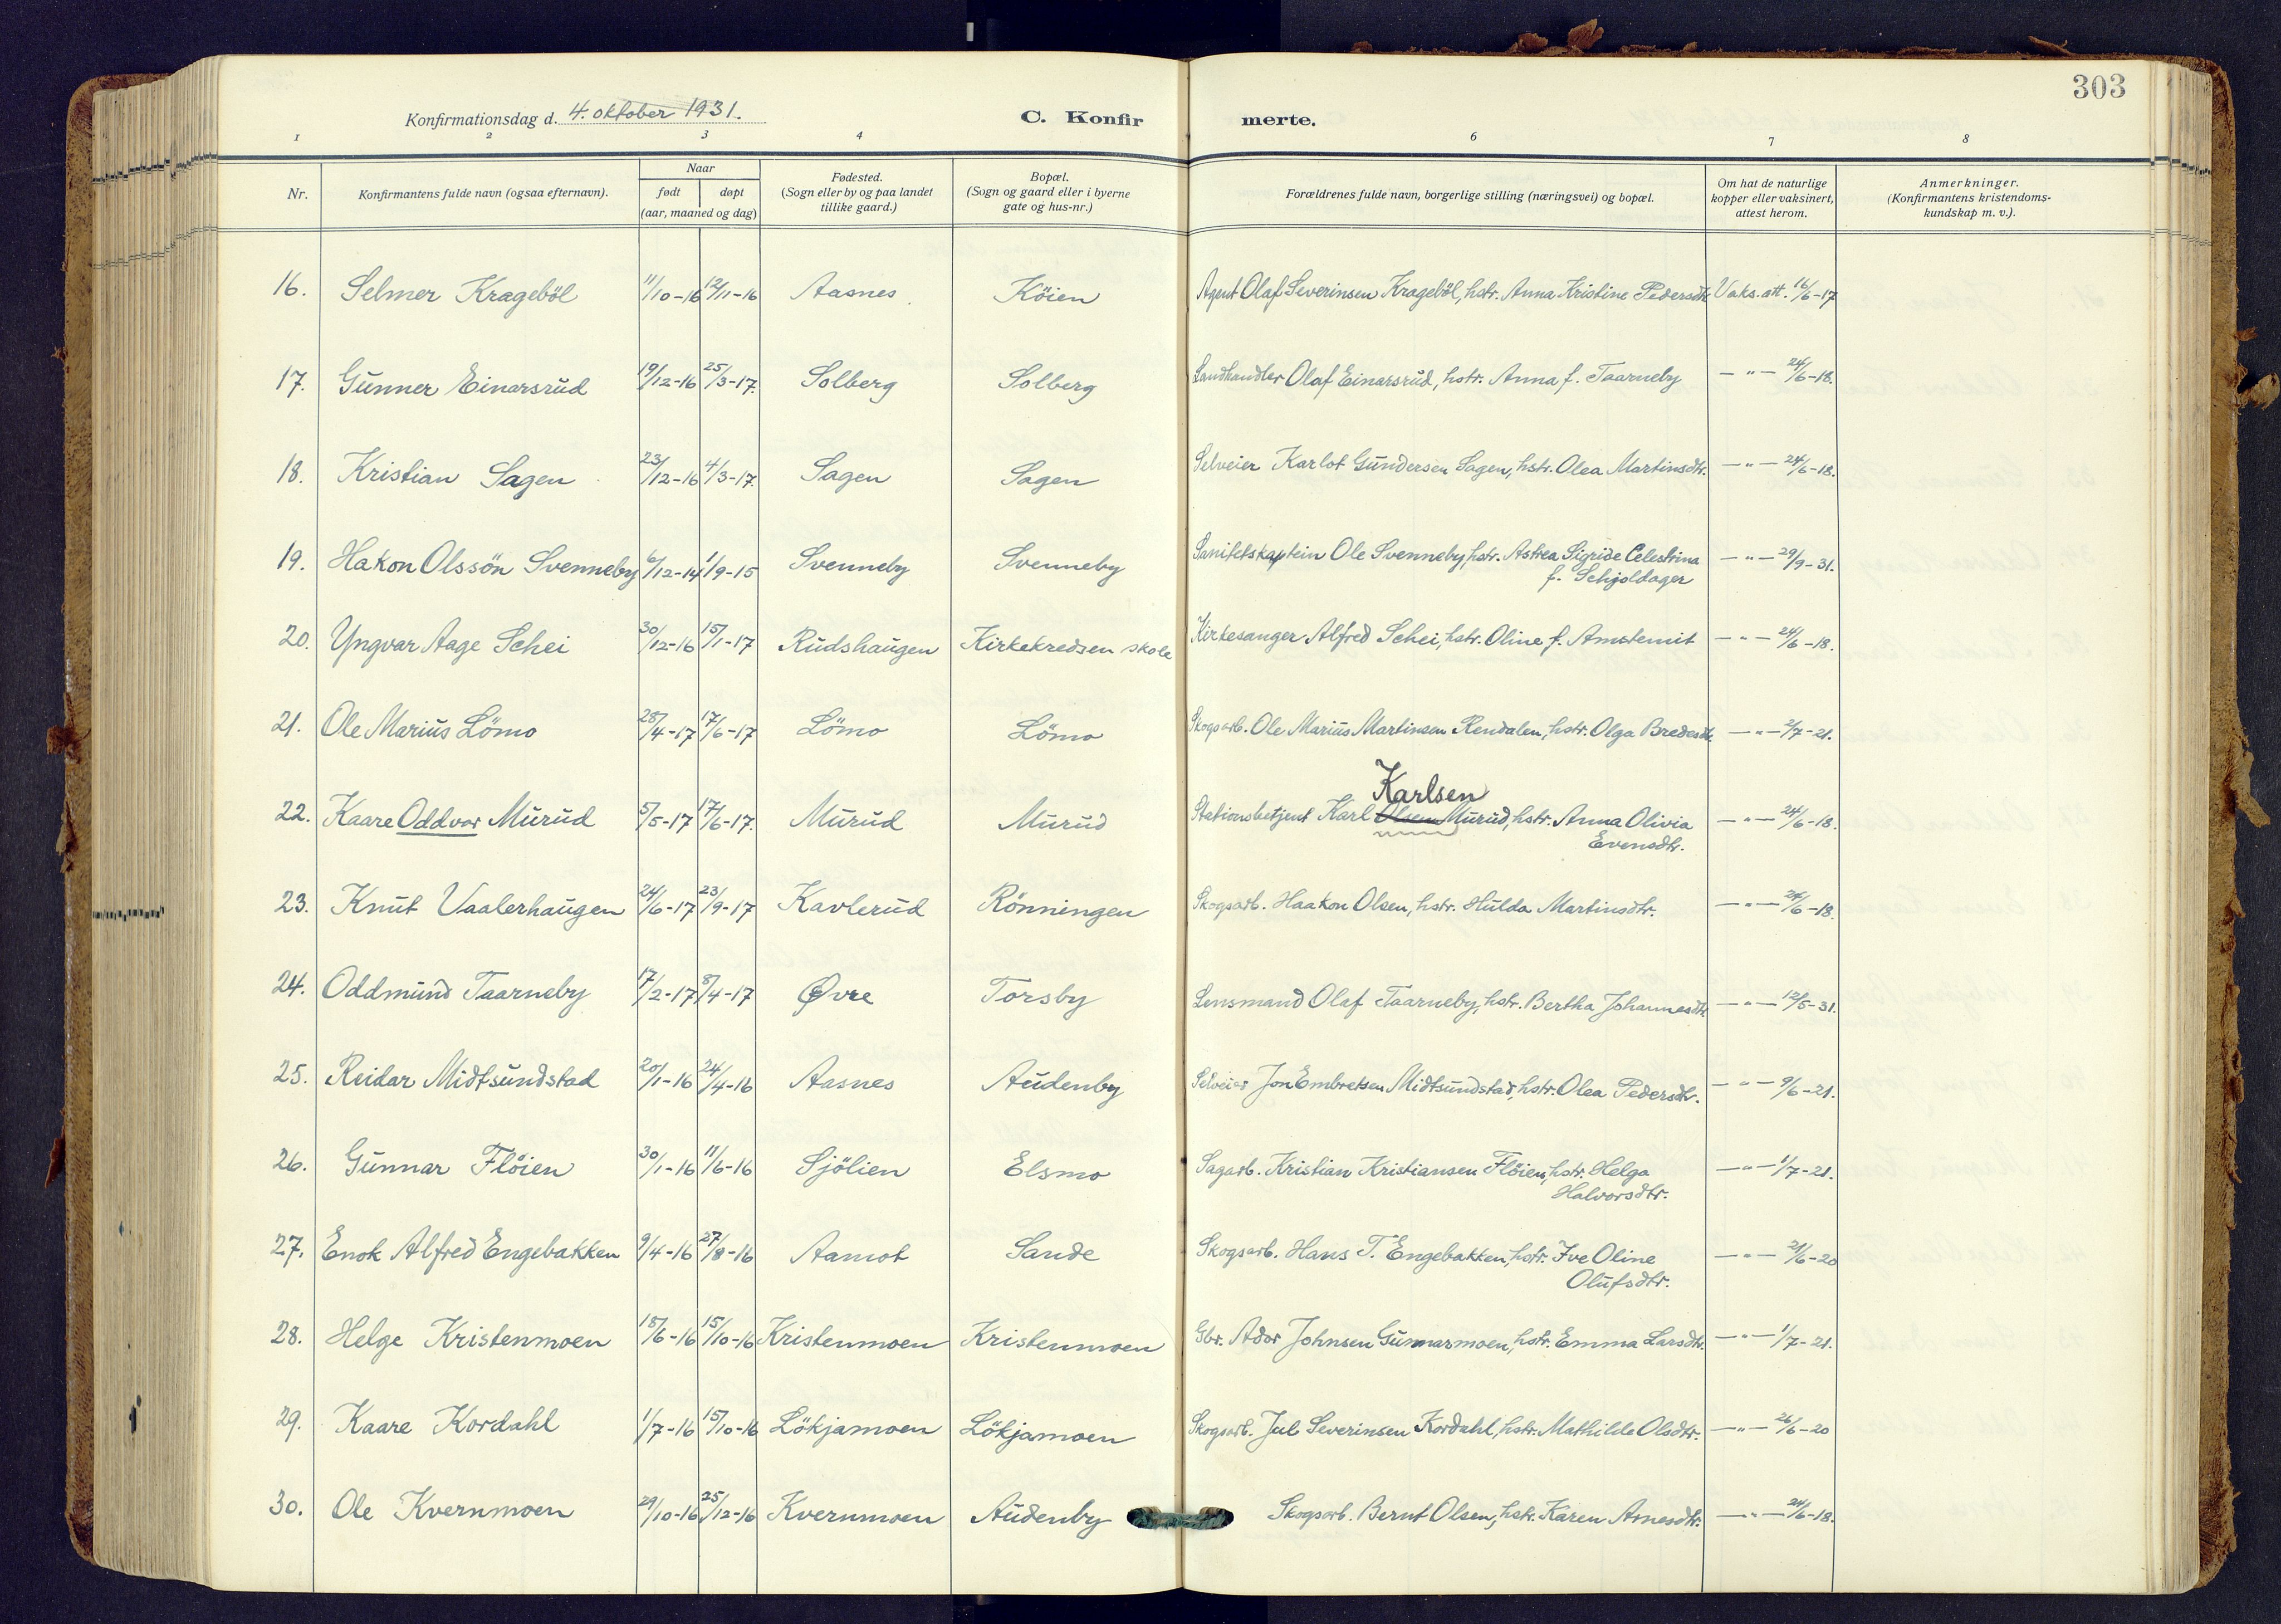 303
Konfirmationsdag d. 4. oktober 1931.
C. Konfirmerte.
1 2 3 4 6 7 8
Nr. Konfirmantens fulde navn (ogsaa efternavn). Naar født døpt (aar, maaned og dag) Fødested. (Sogn eller by og paa landet tillike gaard.) Bopæl. (Sogn og gaard eller i byerne gate og hus-nr.) Forældrenes fulde navn, borgerlige stilling (næringsvei) og bopæl. Om hat de naturlige kopper eller vaksinert, attest herom. Anmerkninger. (Konfirmantens kristendoms-kundskap m. v.).
16. Selmer Krageböl 11/10-16 12/11-16 Aasnes Köien Agent Olaf Severinsen Krageböl, hstr. Anna Kristine Pedersdtr. Vaks. att. 16/6-17
17. Gunner Einarsrud 19/12-16 25/3-17. Solberg Solberg Landhandler Olaf Einarsrud, hstr. Anna f. Taarneby — " — 24/6-18.
18. Kristian Sagen 23/12-16 4/3-17. Sagen Sagen Selveier Karlot Gundersen Sagen, hstr. Olea Martinsdtr. — " — 24/6-18.
19. Hakon Olssön Svenneby 6/12-14 1/9-15 Svenneby Svenneby Sanitetskaptein Ole Svenneby, hstr. Astrea Sigride Celestina — " — 29/9-31.
f. Schjoldager
20. Yngvar Aage Schei 30/12-16 15/1-17 Rudshaugen Kirkekredsen skole Kirkesanger Alfred Schei, hstr. Oline f. Amstemit — " — 24/6-18.
21. Ole Marius Lömo 28/4-17 17/6-17 Lömo Lömo Skogsarb. Ole Marius Martinsen Rendalen, hstr. Olga Bredesdtr. — " — 2/7-21.
Karlsen
22. Kaare Oddvar Murud 5/5-17 17/6-17. Murud Murud Stationsbetjent Karl Olsen Murud, hstr. Anna Olivia — " — 24/6-18.
Evensdtr.
23. Knut Vaalerhaugen 24/6-17 23/9-17 Kavlerud Rönningen Skogsarb. Haakon Olsen, hstr. Hulda Martinsdtr. — " — 24/6-18.
24. Oddmund Taarneby 17/2-17 8/4-17 Øvre Torsby Lensmand Olaf Taarneby, hstr. Bertha Johannesdtr — " — 12/5-31.
25. Reidar Midtsundstad 20/1-16 24/4-16 Aasnes Audenby Selveier Jon Embretsen Midtsundstad, hstr. Olea Pedersdtr. — " — 9/6-21.
26. Gunnar Flöien 30/1-16 11/6-16 Sjölien Elsmo Sagarb. Kristian Kristiansen Flöien, hstr. Helga — " — 1/7-21.
Halvorsdtr.
27. Enok Alfred Engebakken 9/4-16 27/8-16 Aamot Sande Skogsarb. Hans T. Engebakken, hstr. Ive Oline — " — 21/6-20
Olufsdtr.
28. Helge Kristenmoen 18/6-16 15/10-16 Kristenmoen Kristenmoen Gbr. Ador Johnsen Gunnarmoen, hstr. Emma Larsdtr. — " — 1/7-21.
29. Kaare Kordahl 1/7-16 15/10-16 Lökjamoen Lökjamoen Skogsarb. Jul Severinsen Kordahl, hstr. Mathilde Olsdtr. — " — 26/6-20
30. Ole Kvernmoen 29/10-16 25/12-16 Kvernmoen Audenby Skogsarb. Bernt Olsen, hstr. Karen Arnesdtr. — " — 24/6-18.